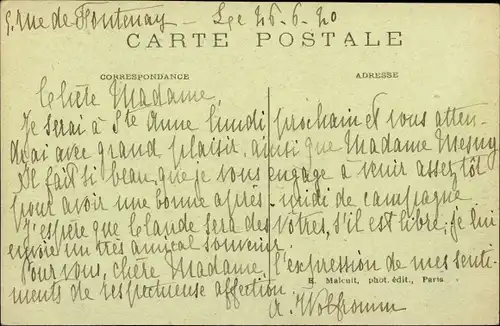 9. rue de Fontenay – Lge 26-6-20
CARTE POSTALE
CORRESPONDANCE
ADRESSE
Chère Madame,
Je serai à Ste Anne lundi prochain et vous atten-
drai avec grand plaisir, ainsi que Madame Mesny
Il fait si beau, que je vous engage à venir assez tôt
pour avoir une bonne après-midi de campagne
J'espère que Claude sera des vôtres, s'il est libre; je lui
envoie un très amical souvenir.
Pour vous, chère Madame, l'expression de mes senti-
ments de respectueuse affection.
E. Malcuit, phot. édit., Paris
A. Wolfromm